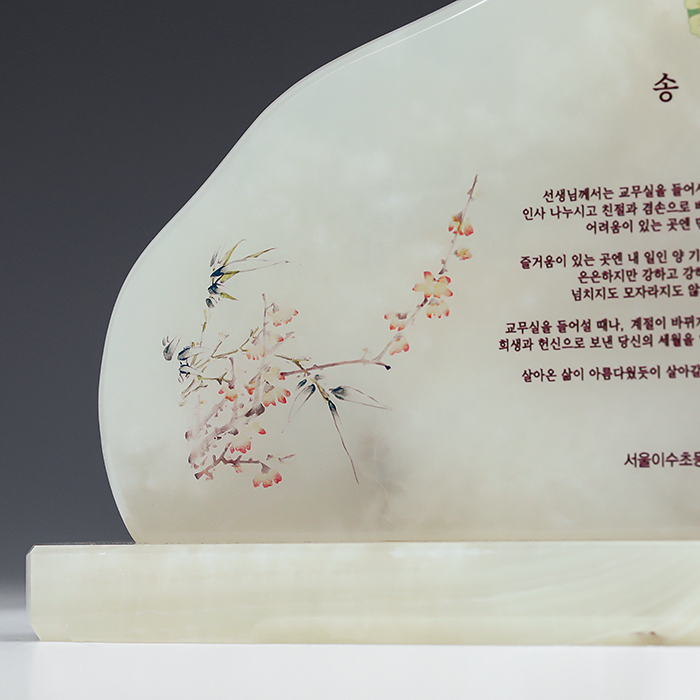 송
선생님께서는 교무실을 들어서
인사 나누시고 친절과 겸손으로
어려움이 있는 곳엔
즐거움이 있는 곳엔 내 일인 양 기
은은하지만 강하고 강하
넘치지도 모자라지도 않
교무실을 들어설 때나, 계절이 바뀌
희생과 헌신으로 보낸 당신의 세월을
살아온 삶이 아름다웠듯이 살아갈
서울이수초등